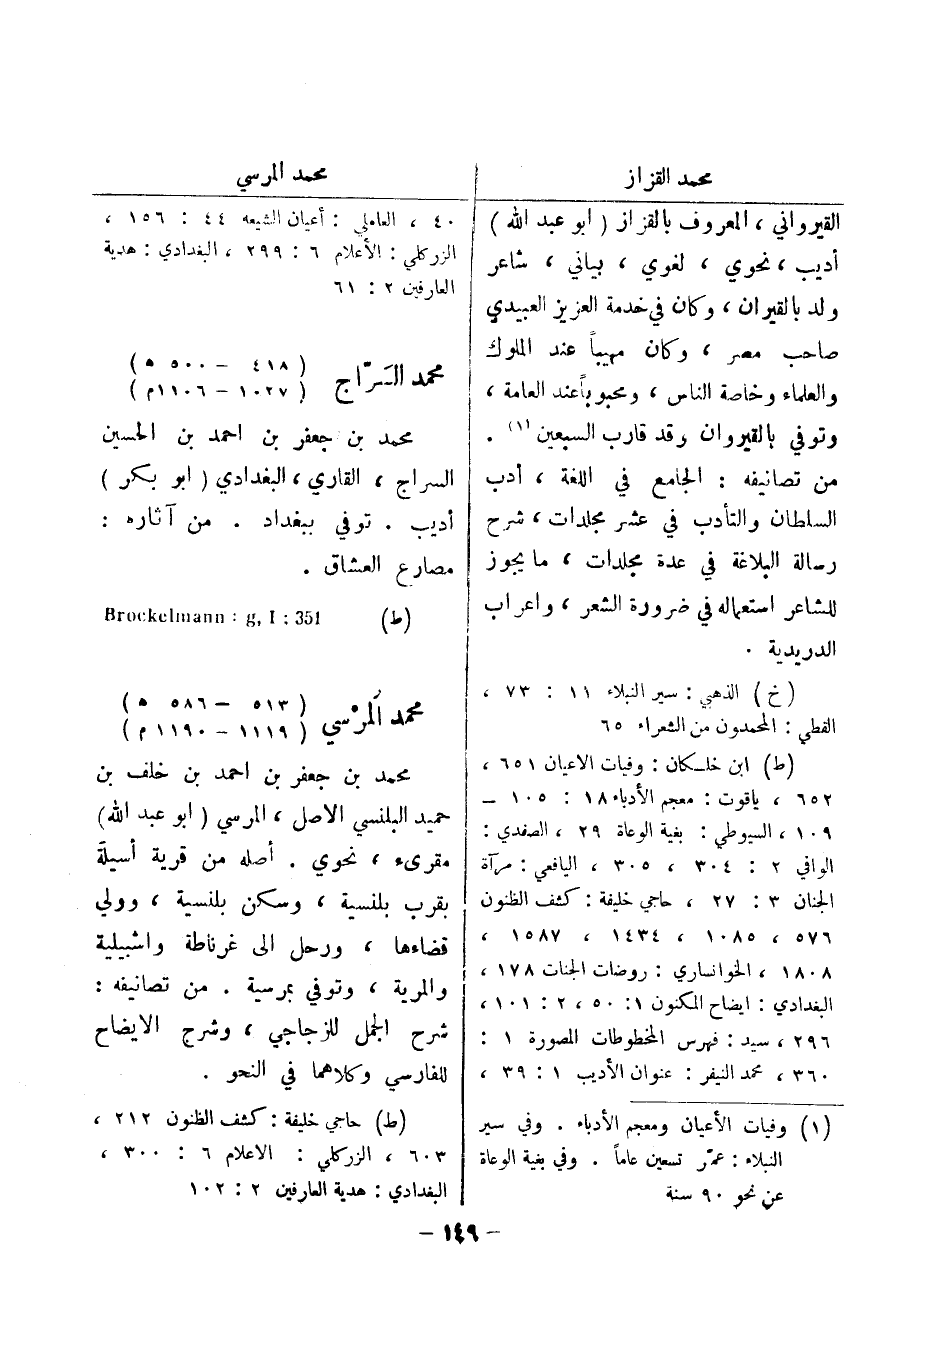 محمد القزاز
القيرواني ، المعروف بالقزاز ( ابو عبد الله )
أديب ، نحوي ، لغوي ، بياني ، شاعر
ولد بالقيران ، وكان في خدمة العزيز العبيدي
صاحب مصر ، وكان مهيباً عند الملوك
والعلماء وخاصة الناس ، ومحبوباً عند العامة ،
وتوفي بالقيروان وقد قارب السبعين (١) .
من تصانيفه : الجامع في اللغة ، أدب
السلطان والتأدب في عشر مجلدات ، شرح
رسالة البلاغة في عدة مجلدات ، ما يجوز
للشاعر استعماله في ضرورة الشعر ، واعراب
الدريدية .
(خ) الذهبي : سير النبلاء ١١ : ٧٣ ،
القفطي : المحمدون من الشعراء ٦٥
(ط) ابن خلكان : وفيات الاعيان ١ ٦٥ ،
٦٥٢ ، ياقوت : معجم الأدباء ١٨ : ١٠٥ –
١٠٩ ، السيوطي : بغية الوعاة ٢٩ ، الصفدي :
الوافي ٢ : ٣٠٤ ، ٣٠٥ ، اليافعي : مرآة
الجنان ٣ : ٢٧ ، حاجي خليفة : كشف الظنون
٥٧٦ ، ١٠٨٥ ، ١٤٣٤ ، ١٥٨٧ ،
١٨٠٨ ، الخوانساري : روضات الجنات ١٧٨ ،
البغدادي : ايضاح المكنون ١ : ٥٠ ، ٢ : ١٠١ ،
٢٩٦ ، سيد : فهرس المخطوطات المصورة ١ :
٣٦٠ ، محمد النيفر : عنوان الأديب ١ : ٣٩ ،
(١) وفيات الأعيان ومعجم الأدباء . وفي سير
النبلاء : عمّر تسعين عاماً . وفي بغية الوعاة
عن نحو ٩٠ سنة
محمد المرسي
٤٠ ، العاملي : أعيان الشيعه ٤٤ : ١٥٦ ،
الزركلي : الأعلام ٦ : ٢٩٩ ، البغدادي : هدية
العارفين ٢ : ٦١
محمد السّرّاج ( ٤١٨ – ٥٠٠ ه )
( ١٠٢٧ – ١١٠٦ م )
محمد بن جعفر بن احمد بن الحسين
السراج ، القاري ، البغدادي ( ابو بكر )
أديب . توفي ببغداد . من آثاره :
مصارع العشاق .
(ط) Brockelmann : g, I : 351
محمد المُرْسي ( ٥١٣ – ٥٨٦ ه )
( ١١١٩ – ١١٩٠ م )
محمد بن جعفر بن احمد بن خلف بن
حميد البلنسي الاصل ، المرسي ( ابو عبد الله )
مقرىء ، نحوي . أصله من قرية أسيلَة
بقرب بلنسية ، وسكن بلنسية ، وولي
قضاءها ، ورحل الى غرناطة واشبيلية
والمرية ، وتوفي بمرسية . من تصانيفه :
شرح الجمل للزجاجي ، وشرح الايضاح
للفارسي وكلاهما في النحو .
(ط) حاجي خليفة : كشف الظنون ٢١٢ ،
٦٠٣ ، الزركلي : الاعلام ٦ : ٣٠٠ ،
البغدادي : هدية العارفين ٢ : ١٠٢
– ١٤٩ –